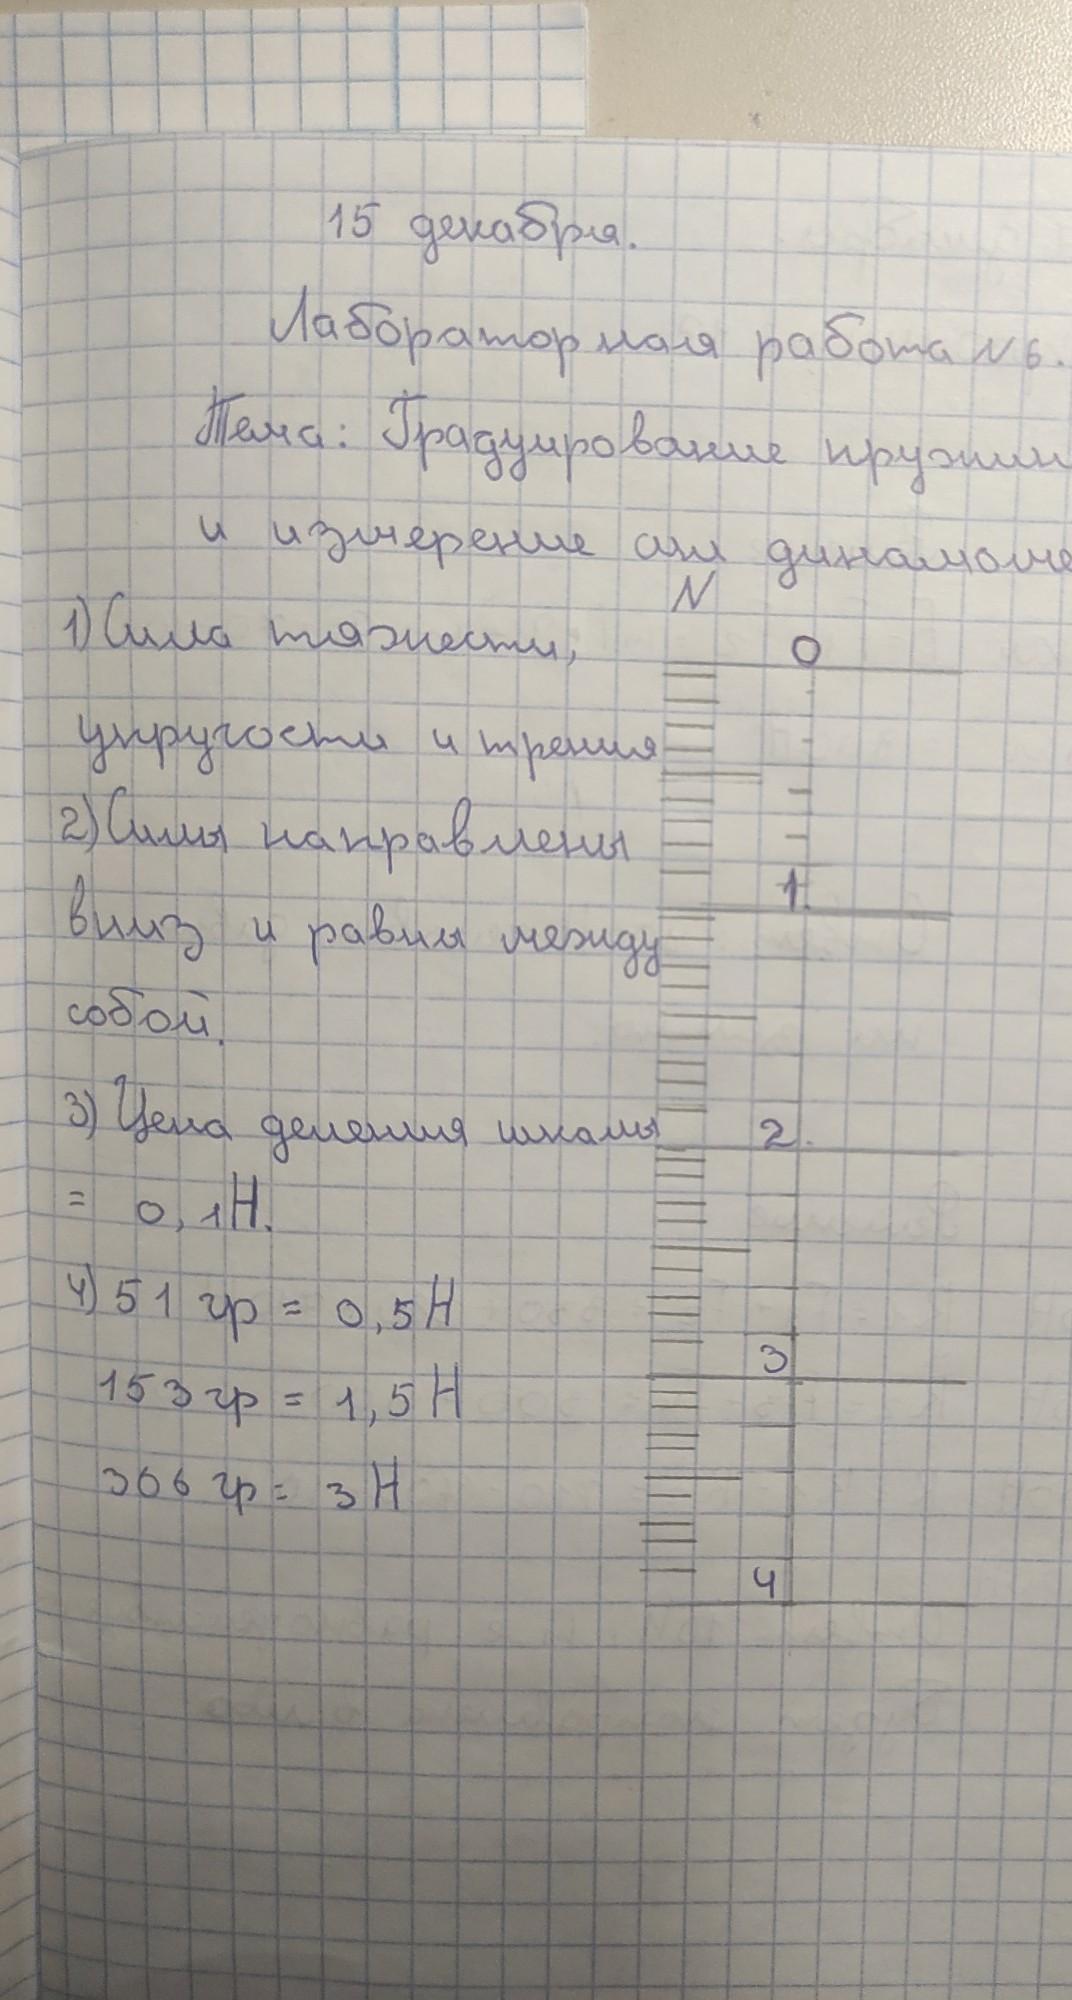 15 декабря.
Лабораторная работа N 6.
Тема: Градуирование пружин
и измерение сил динамоме
N
1) Сила тяжести,
0
упругости и трения
2) Силы направлены
1
вниз и равны между
собой.
3) Цена деления шкалы
2
= 0,1Н.
4) 51 гр = 0,5Н
3
153 гр = 1,5Н
306 гр = 3Н
4